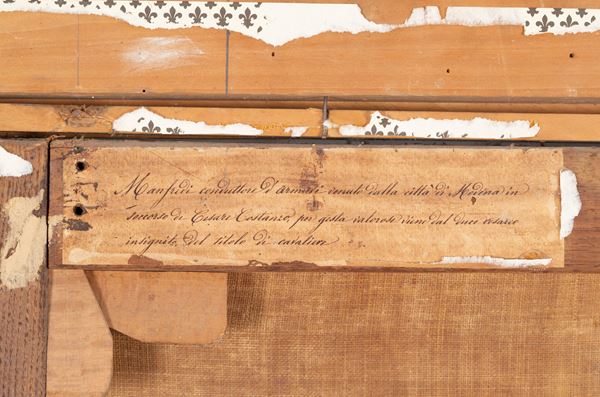 Manfredi conduttore d'armati venuto dalla città di Modena in
soccorso di Cesare Costanzo, per gesta valorose viene dal duce
insignito del titolo di cavaliere